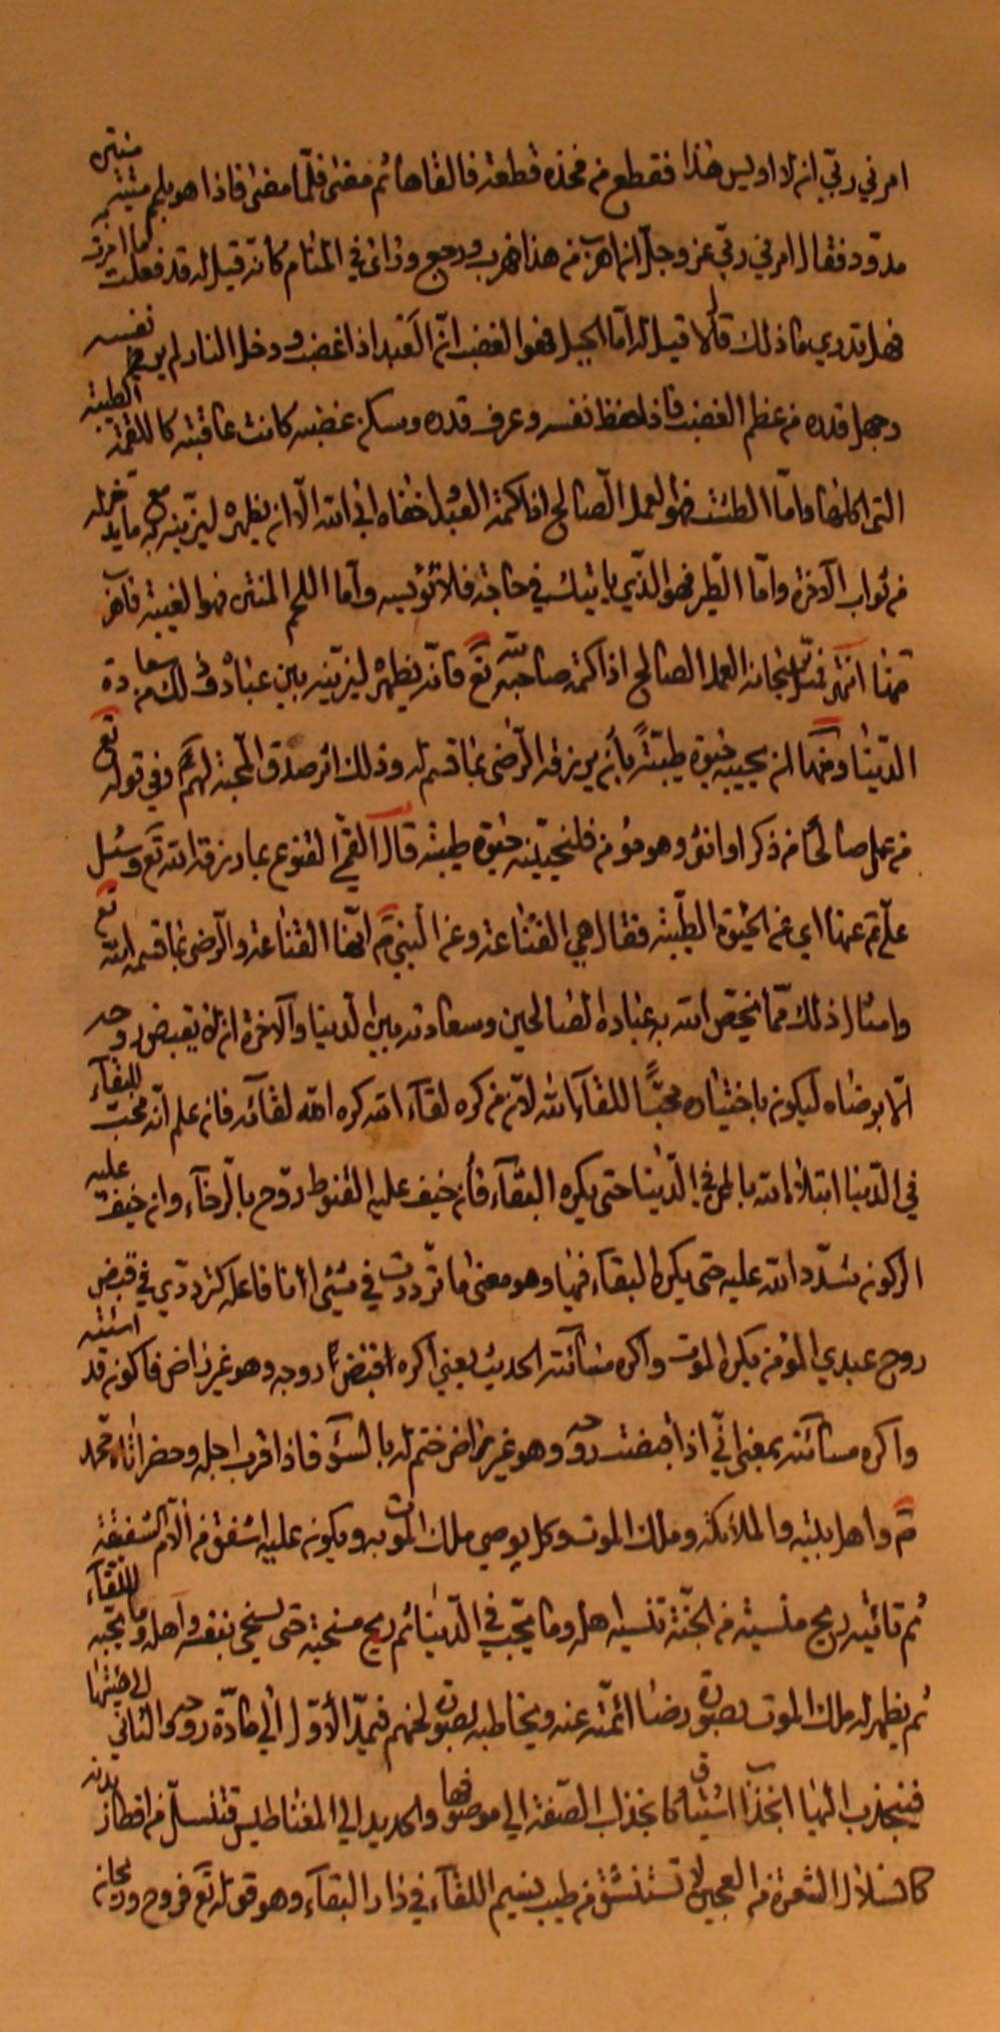 امرني ربي ان لا اويس هذا فقطع من فخذه قطعة فالقاها ثم مضى فلما مضى فاذا هو بلحم ميتة منتن
مدوّد فقال امرني ربي عز وجل ان اهرب من هذا فهرب ورجع وراى في المنام كانه قيل له قد فعلت ما امرت
فهل تدري ما ذلك قال لا قيل له اما الجبل فهو الغضب انّ العبد اذا غضب دخل النار لم ير نفسه
وجهل قدره من عظم الغضب فاذا حفظ نفسه وعرف قدره وسكن غضبه كانت عاقبته كاللقمة الطيبة
التي اكلتها وامّا الطشت فهو العمل الصالح اذا كتمه العبد واخفاه ابى الله الّا ان يظهره ليزينه به مع ما يدخر له
من ثواب الآخرة وامّا الطير فهو الذي ياتيك في حاجة فلا تؤيسه وامّا اللحم المنتن فهو الغيبة فاهرب
منها انتهى العمل الصالح اذا كتمه صاحبه تع فانه يظهره ليزينه بين عباده وذلك من سعادة
الدنيا ومنها ان يحييه حيوة طيبة بان يرزقه الرضى بما قسم له وذلك اثر صدق المحبة لهم وفي قوله تع
من عمل صالحًا من ذكر او انثى وهو مؤمن فلنحيينّه حيوة طيبة قال القمي القنوع بما رزقه الله تع وسئل
علي ع عنها اي عن الحيوة الطيبة فقال هي القناعة وعن النبي ص انها القناعة والرضى بما قسم الله تع
وامثال ذلك مما يخصّ الله به عباده الصالحين وسعادته بين الدنيا والآخرة ان لا يقبض روحه
الّا برضاه ليكون باختياره محبًّا للقاء الله لانّ من كره لقآء الله كره الله لقآئه فان علم انه محبّ للبقآء
في الدنيا ابتلاه الله بالمرض في الدنيا حتى يكره البقآء فان خيف عليه القنوط روّح بالرخآء وان خيف عليه
الركون شدّد الله عليه حتى يكره البقاء فيها وهو معنى ما تردّدت في شيء انا فاعله كتردّدي في قبض
روح عبدي المؤمن يكره الموت واكره مسائته الحديث يعني اكره اقبض روحه وهو غير راض فاكون قد اسئته
واكره مسائته بمعنى انّي اذا قبضت روحه وهو غير راض ختم له بالسوء فاذا قرب اجله وحضر اتاه محمد
ص واهل بيته والملائكة وملك الموت وكل يوصي ملك الموت به ويكون عليه اشفق من الام الشفيقة
ثم تاتيه ريح منسية من الجنة تنسيه اهله وما يحب في الدنيا ثم ريح مسخية حتى يسخي بنفسه واهله وما يحبه للقاء
ثم يظهر له ملك الموت بصورة رضا ائمته عنه ويخاطبه بصوت لحنهم فيميل الاول الى مادة روحه والثاني الى هيئتها
فينجذب اليها انجذاب اشتياق كما تجذب الصفة الى موصوفها والحديد الى المغناطيس فتنسل من اقطار بدنه
كانسلال الشعرة من العجين لا تستنشق من طيب نسيم اللقآء في دار البقآء وهو قوله تع فروح وريحان